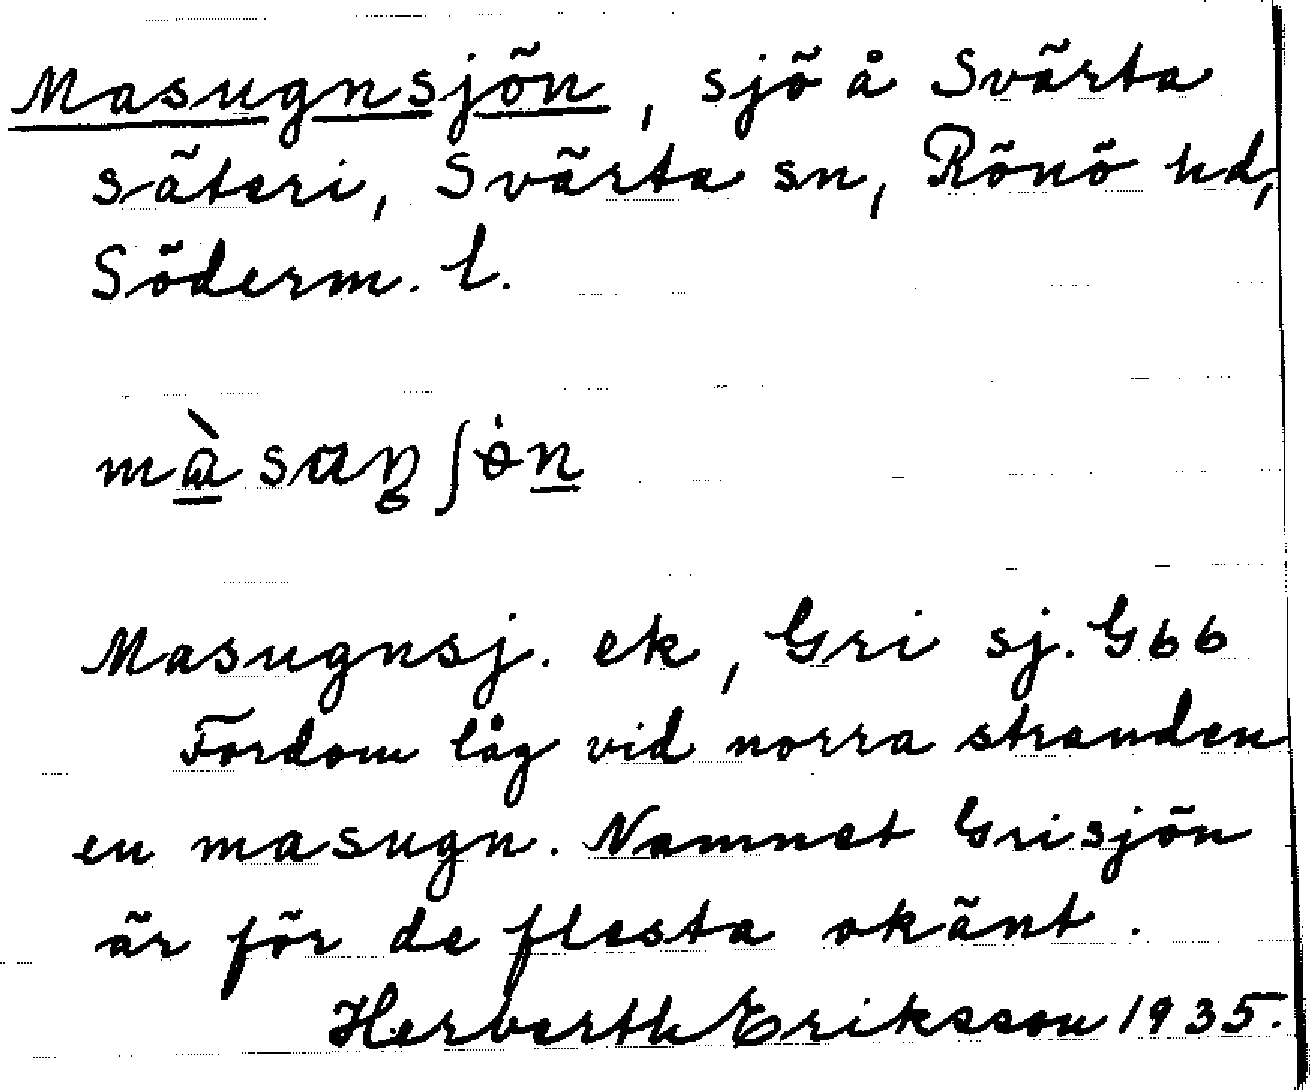 Masugnsjön, sjö å Svärta
säteri, Svärta sn, Rönö hd,
Söderm. l.
Masugnsj. ek, Gri sj. G66
Fordom låg vid norra stranden
en masugn. Namnet Grisjön
är för de flesta okänt.
Herberth Eriksson 1935.